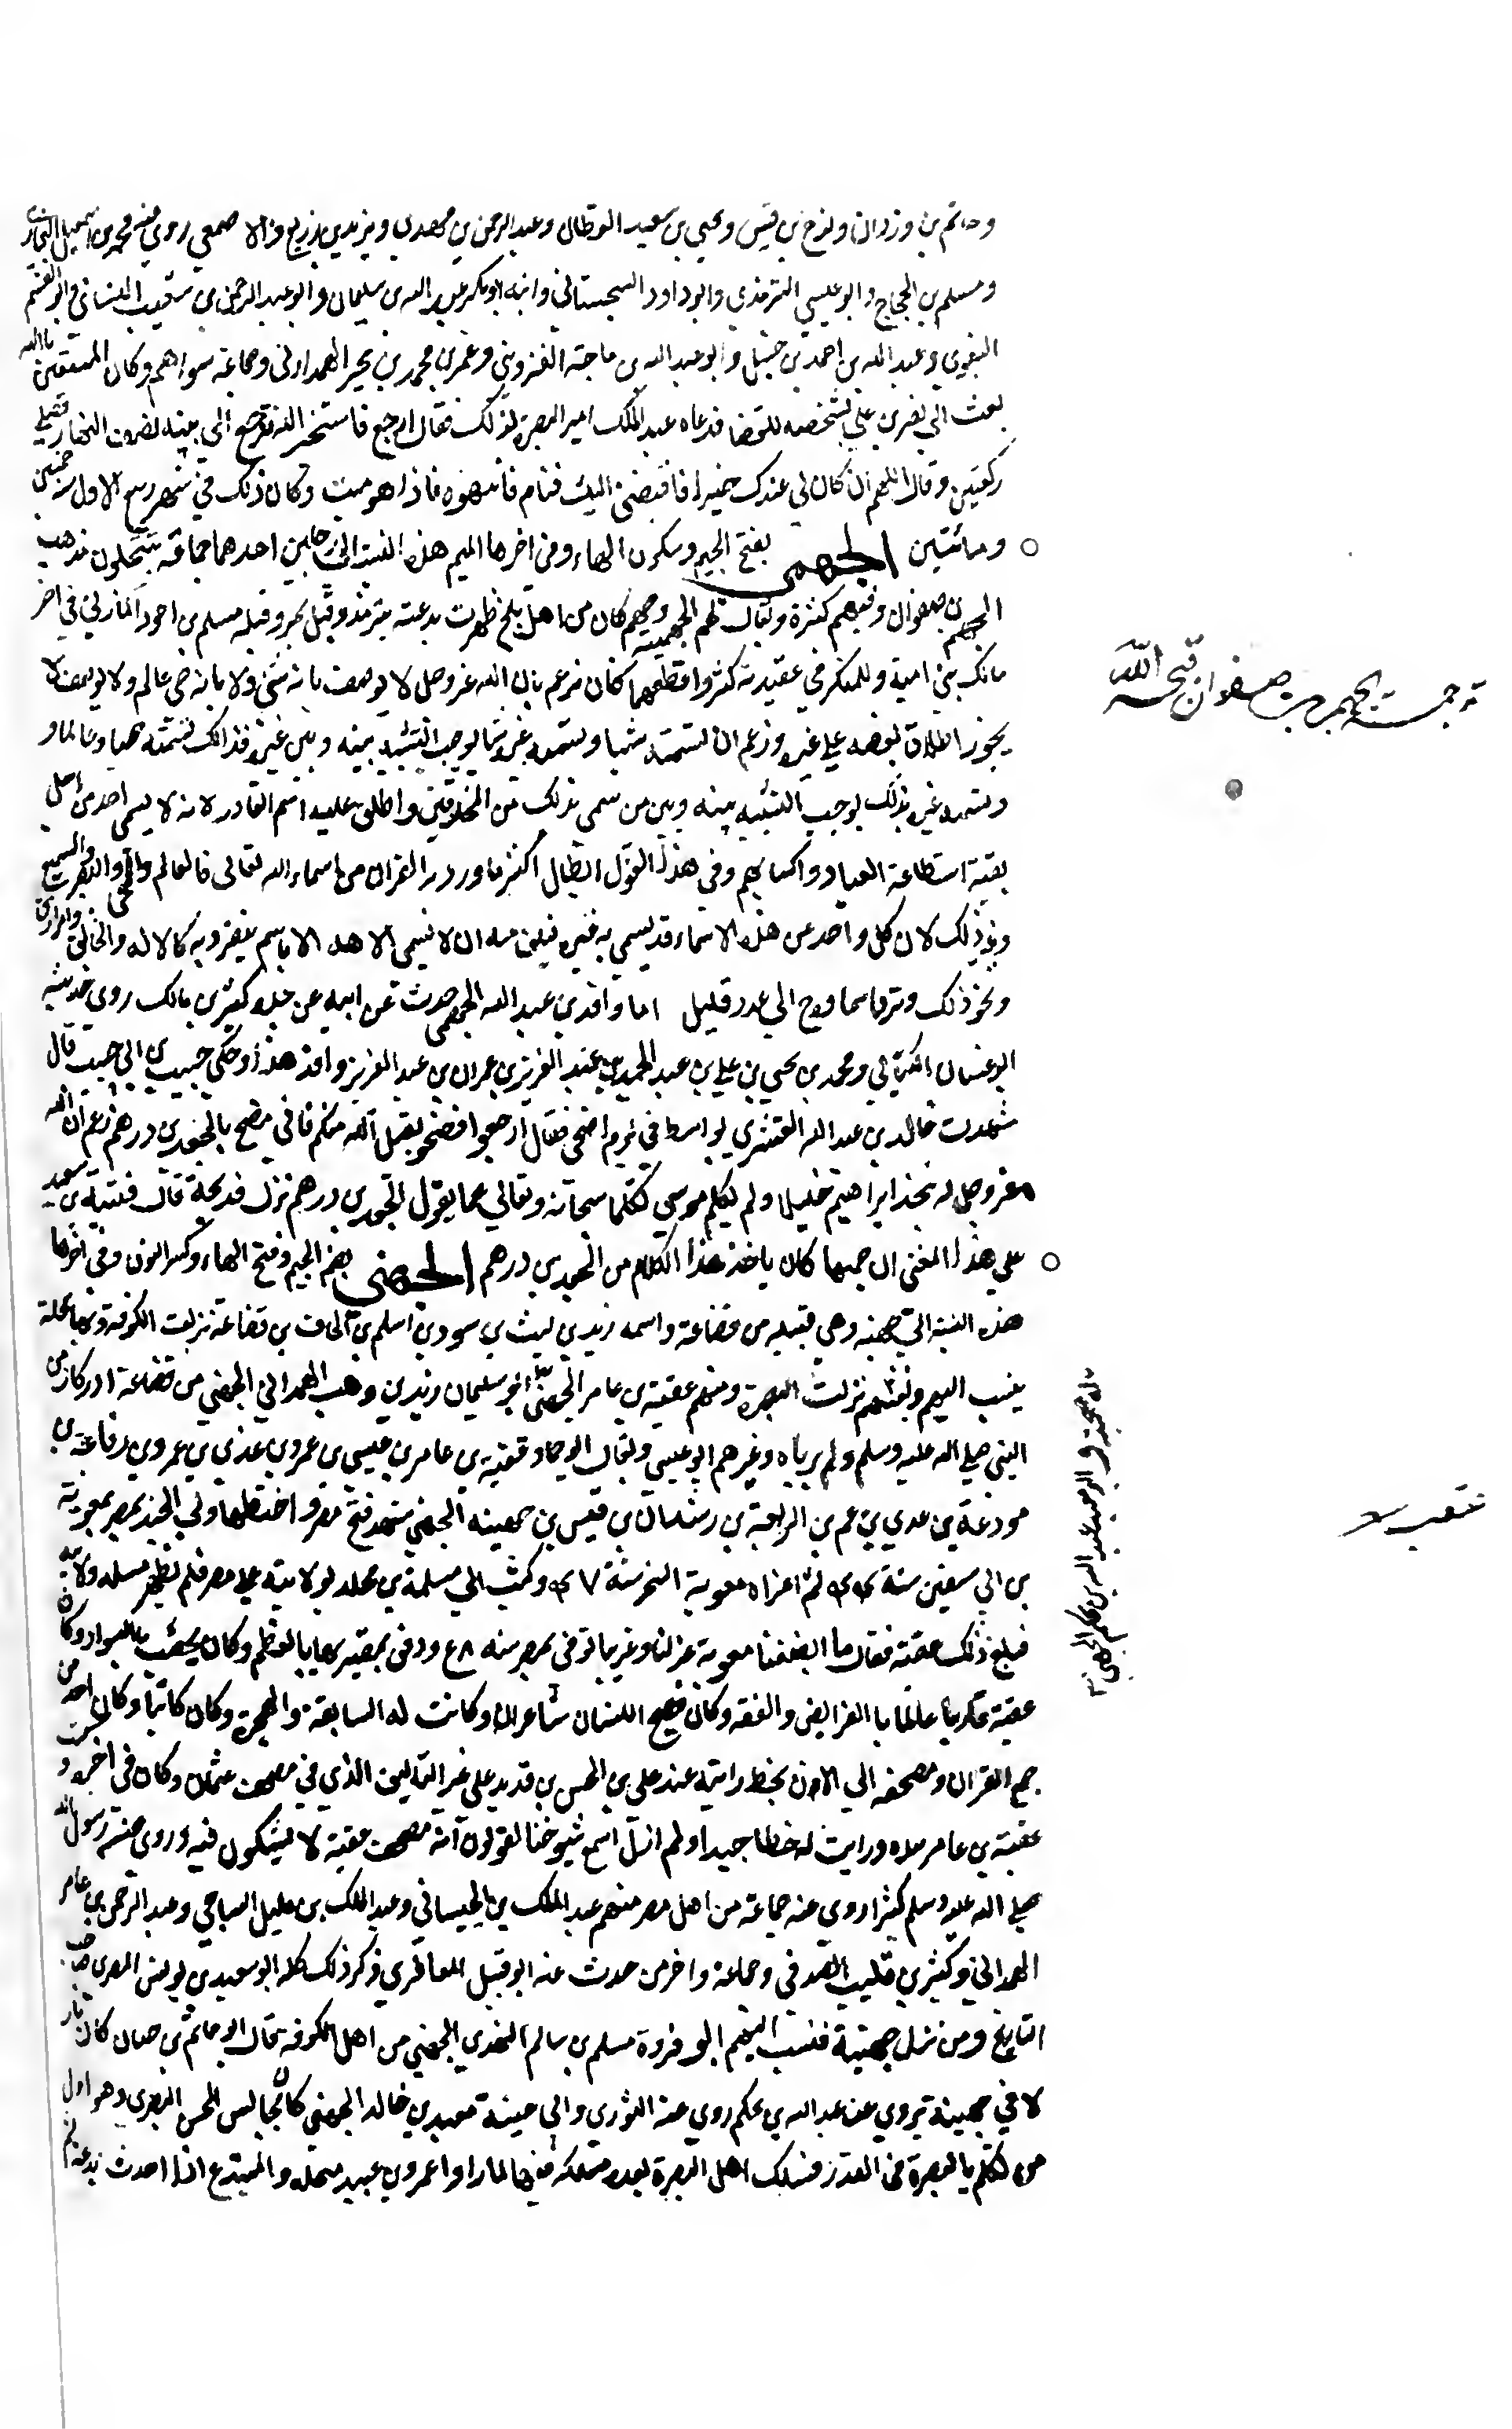 وحاتم بن وردان ونوح بن قيس ويحيي بن سعيد القطان وعبد الرحمن بن مهدي ويزيد بن زريع والاصمعي روي عنه محمد بن اسمعيل البخاري
ومسلم بن الحجاج وابو عيسي الترمذي وابو داود السجستاني وابنه ابو بكر عبد الله بن سليمان وابو عبد الرحمن بن شعيب النسائي وابو القسم
البغوي وعبد الله بن احمد بن حنبل وابو عبد الله بن ماجة القزويني وعمر بن محمد بن بجير الهمداني وجماعة سواهم وكان المستعين بالله
بعث الي نصر بن علي يشخصه للقضا فدعاه عبد الملك امير البصرة لذلك فقال ارجع فاستخير الله فرجع الي بيته نصف النهار فصلي
ركعتين وقال اللهم ان كان لي عندك خير فاقبضني اليك فنام فانبهوه فاذا هو ميت وكان ذلك في شهر ربيع الاول سنة خمسين
ومائتين الجهمي بفتح الجيم وسكون الهاء وفي اخرها الميم هذه النسبة الي رجلين احدهما جماعة ينتحلون مذهب
الجهم بن صفوان وفيهم كثرة ويقال لهم الجهمية وجهم كان من اهل بلخ ظهرت بدعته بترمذ وقتل بمرو قتله مسلم بن احوز المازني في اخر
ملك بني امية والمنكر في عقيدته كثير وافظعها كان يزعم بان الله عز وجل لا يوصف بانه شيء ولا بانه حي عالم ولا يوصف بما لا
يجوز اطلاق بعضه علي غيره وزعم ان تسميته شيا وتسمية غيره شيا يوجب التشبيه بينه وبين غيره فذلك تسميته حيا وعالما و
وتسمية غيره بذلك يوجب التشبيه بينه وبين من سمي بذلك من المخلوقين واطلق عليه اسم القادر لانه لا يسمي احد من اصل
بقية استطاعة العباد واكتسابهم وفي هذا القول ابطال اكثر ما ورد به القران من اسماء الله تعالي كالعالم والحي والبصير والسميع
ونحو ذلك لان كل واحد من هذه الاسماء قد يسمي به غيره فيلزمه ان لا يسمي الاله الا باسم ينفرد به كالاله والخالق والرازق
ونحو ذلك اما واقد بن عبد الله الجهمي حدث عن ابيه عن جده كثير بن مالك روي حديثه
ابو غسان الكناني ومحمد بن يحيي بن علي بن عبد الحميد عن عبد العزيز بن عمران بن عبد العزيز بن واقد هذا وحكي حبيب بن ابي حبيب قال
شهدت خالد بن عبد الله القسري بواسط في يوم اضحي فقال ارجعوا فضحوا يقبل الله منكم فاني مضح بالجعد بن درهم زعم ان الله
عز وجل لم يتخذ ابراهيم خليلا ولم يكلم موسي تكليما سبحانه وتعالي عما يقول الجعد بن درهم نزل فذبحه قال قتيبة بن سعيد
علي هذا المعني ان جهما كان ياخذ هذا الكلام من الجعد بن درهم الجهني بضم الجيم وفتح الهاء وكسر النون وفي اخرها
هذه النسبة الي جهينة وهي قبيلة من قضاعة واسمه زيد بن ليث بن سود بن اسلم بن الحاف بن قضاعة نزلت الكوفة وبها محلة
ينسب اليهم وبعضهم نزلت البصرة ومنهم عقبة بن عامر الجهني ابو سليمان زيد بن وهب الهمداني الجهني من قضاعة ادرك زمن
النبي صلي الله عليه وسلم ولم يراه وغيرهم ابو عيسي ويقال ابو حماد عقبة بن عامر بن عيسي بن عمرو بن عدي بن عمرو بن رفاعة بن
مودعة بن عدي بن غنم بن الربعة بن رشدان بن قيس بن جهينة الجهني شهد فتح مصر واختط بها ولي الجند بمصر لمعوية
بن ابي سفين سنة ٤٤ ثم اغزاه معوية البحر سنة ٤٧ وكتب الي مسلمة بن مخلد بولايته علي مصر فلم يظهر مسلمة ولايته
فبلغ ذلك عقبة فقال ما انصفنا معوية عزلنا وغربنا توفي بمصر سنة ٥٨ ودفن بمقبرتها بالمقطم وكان يخضب بالسواد وكان
عقبة قاريا عالما بالفرايض والفقه وكان فصيح اللسان شاعرا وكانت له السابقة والهجرة وكان كاتبا وكان احد من
جمع القران ومصحفه الي الان بخطه رايته عند علي بن الحسن بن قديد علي غير التاليف الذي في مصحف عثمان وكان في اخره وكتب
عقبة بن عامر بيده ورايت له خطا جيدا ولم ازل اسمع شيوخنا يقولون انه مصحف عقبة لا يشكون فيه وروي عنه رسول الله
صلي الله عليه وسلم كثيرا روي عنه جماعة من اهل مصر منهم عبد الملك بن الجيساني وعبد الملك بن مليل السباحي وعبد الرحمن بن عامر
الهمداني وكثير بن قليب الصدفي وجماعة واخر من حدث عنه ابو قبيل المعافري ذكر ذلك كله ابو سعيد بن يونس المصري صاحب
التاريخ ومن نزل جهينة فنسب اليهم ابو فروة مسلم بن سالم النهدي الجهني من اهل الكوفة قال ابو حاتم بن حبان كان نازلا
في جهينة يروي عن عبد الله بن عكيم روي عنه الثوري والي جهينة معبد بن خالد الجهني كان يجالس الحسن البصري وهو اول
من تكلم بالبصرة في القدر فسلك اهل البصرة بعده مسلكه فيها لما راوا عمرو بن عبيد ينتحله والمبتدع اذا احدث بدعة لم
ترجمت جهم بن صفوان قبحه الله
له صحبة وابو معبد عبد الله بن عكيم الجهني